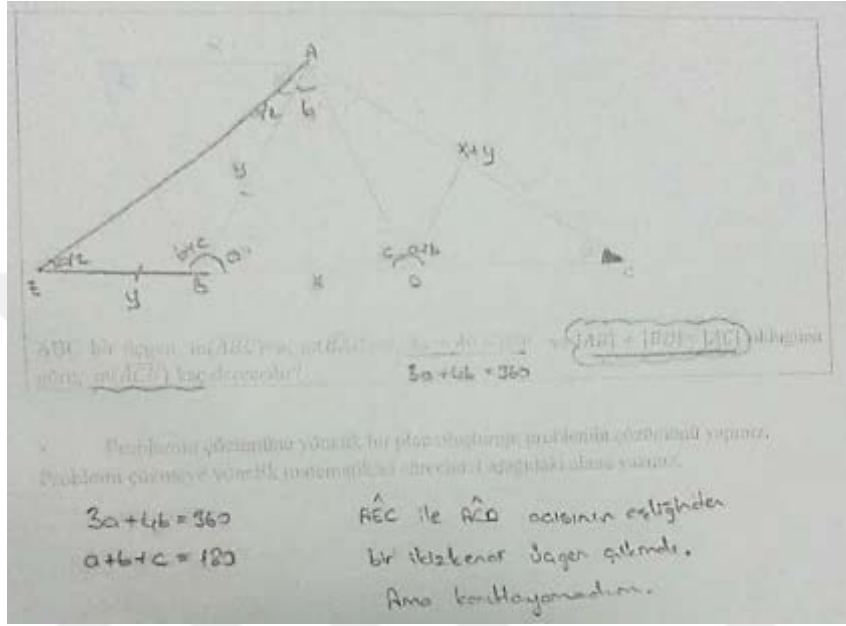 A
b
y
x+y
b+c
a
c
a+b
E
y
B
x
D
C
ABC bir üçgen, |AB| + |BD| = |AC| olduğuna
göre, m(ACB) kaç derecedir?
3a+4b=360
Problemin çözümüne yönelik bir plan oluşturup problemin çözümünü yapınız.
Problemi çözmeye yönelik matematiksel sürecinizi aşağıdaki alana yazınız.
3a+4b=360
a+b+c=180
AEC ile ACD açısının eşliğinden
bir ikizkenar üçgen çıkmalı.
Ama kanıtlayamadım.